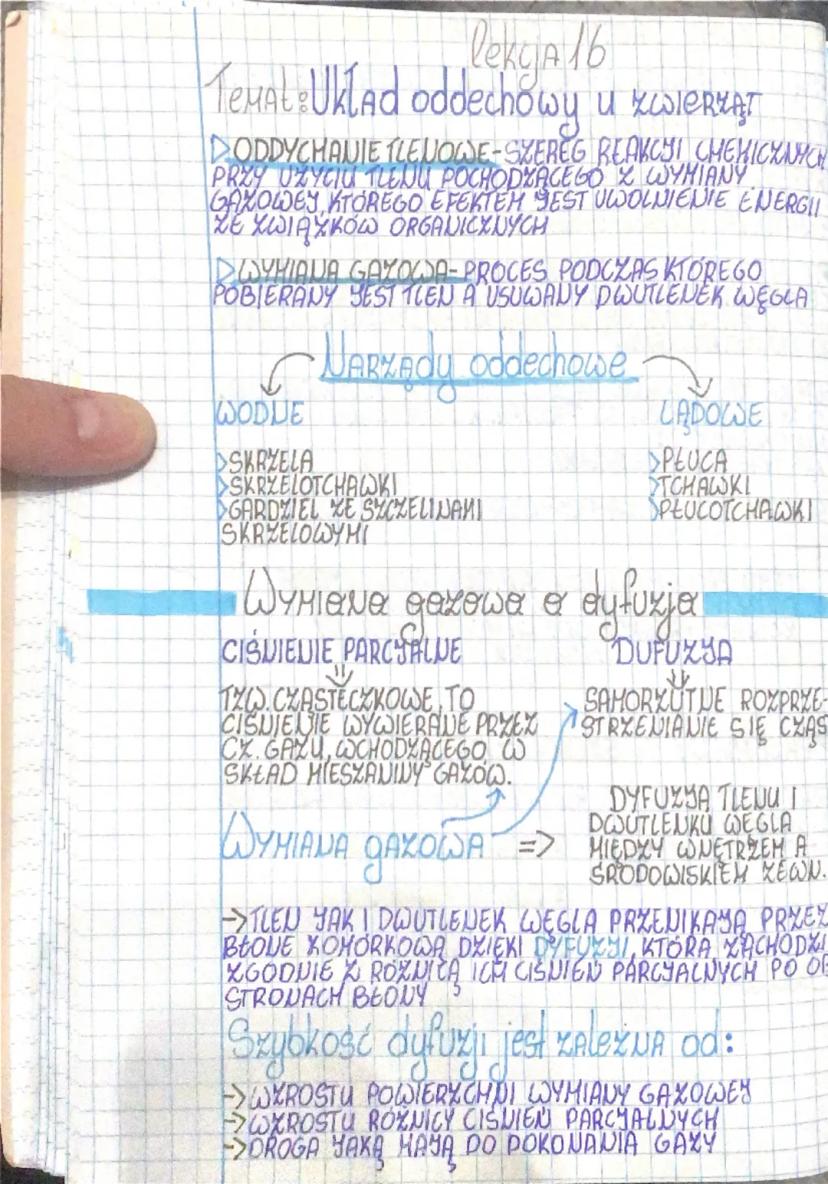 lekcja 16
Temat: Układ oddechowy u zwierząt
▷ ODDYCHANIE TLENOWE - SZEREG REAKCJI CHEMICZNYCH
PRZY UŻYCIU TLENU POCHODZĄCEGO Z WYMIANY
GAZOWEJ, KTÓREGO EFEKTEM JEST UWOLNIENIE ENERGII
ZE ZWIĄZKÓW ORGANICZNYCH
▷ WYMIANA GAZOWA - PROCES PODCZAS KTÓREGO
POBIERANY JEST TLEN A USUWANY DWUTLENEK WĘGLA
Narządy oddechowe
WODNE
> SKRZELA
> SKRZELOTCHAWKI
> GARDZIEL ZE SZCZELINAMI
SKRZELOWYMI
LĄDOWE
> PŁUCA
> TCHAWKI
> PŁUCOTCHAWKI
Wymiana gazowa a dyfuzja
CIŚNIENIE PARCJALNE
TZW. CZĄSTECZKOWE, TO
CIŚNIENIE WYWIERANE PRZEZ
CZ. GAZU, WCHODZĄCEGO W
SKŁAD MIESZANINY GAZÓW.
DUFUZJA
SAMORZUTNE ROZPRZE-
STRZENIANIE SIĘ CZĄS
Wymiana gazowa =>
DYFUZJA TLENU I
DWUTLENKU WĘGLA
MIĘDZY WNĘTRZEM A
ŚRODOWISKIEM ZEWN.
→ TLEN JAK I DWUTLENEK WĘGLA PRZENIKAJĄ PRZEZ
BŁONE KOMÓRKOWĄ DZIĘKI DYFUZJI, KTÓRA ZACHODZI
ZGODNIE Z RÓŻNICĄ ICH CIŚNIEŃ PARCJALNYCH PO OB
STRONACH BŁONY
Szybkość dyfuzji jest zależna od:
→ WZROSTU POWIERZCHNI WYMIANY GAZOWEJ
→ WZROSTU RÓŻNICY CIŚNIEŃ PARCJALNYCH
→ DROGA JAKĄ MAJĄ DO POKONANIA GAZY